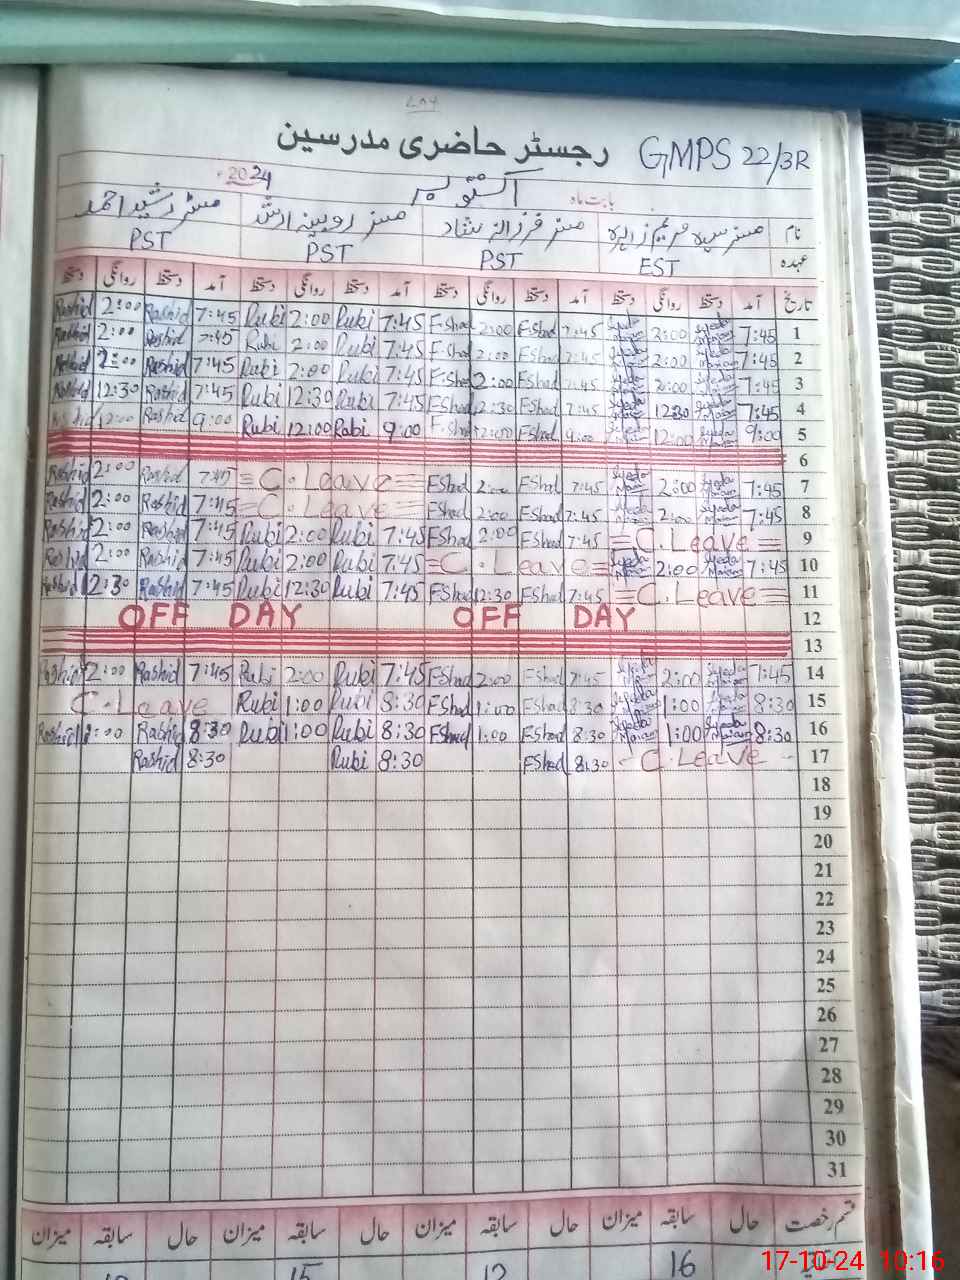 رجسٹر حاضری مدرسین GMPS 22/3R
بابت ماہ اکتوبر 2024
نام مسز سیدہ مریم زاہرہ مسز فرزانہ شاد مسز روبینہ ارشد مسٹر رشید احمد
عہدہ EST PST PST PST
تاریخ آمد دستخط روانگی دستخط آمد دستخط روانگی دستخط آمد دستخط روانگی دستخط آمد دستخط روانگی دستخط
Rashid 2:00 Rashid 7:45 Rubi 2:00 Rubi 7:45 F.Shad 2:00 F.Shad 7:45 Syeda Mariam 2:00 Syeda Mariam 7:45 1
Rashid 2:00 Rashid 7:45 Rubi 2:00 Rubi 7:45 F.Shad 2:00 FShad 7:45 Syeda Mariam 2:00 Syeda Mariam 7:45 2
Rashid 2:00 Rashid 7:45 Rubi 2:00 Rubi 7:45 F.Shad 2:00 FShad 7:45 Syeda Mariam 2:00 Syeda Mariam 7:45 3
Rashid 12:30 Rashid 7:45 Rubi 12:30 Rubi 7:45 FShad 12:30 FShad 7:45 Syeda Mariam 12:30 Syeda Mariam 7:45 4
Rashid 12:00 Rashid 9:00 Rubi 12:00 Rubi 9:00 F.Shad 12:00 FShad 9:00 Syeda Mariam 12:00 Syeda Mariam 9:00 5
6
Rashid 2:00 Rashid 7:45 C.Leave FShad 2:00 FShad 7:45 Syeda Mariam 2:00 Syeda Mariam 7:45 7
Rashid 2:00 Rashid 7:45 C.Leave FShad 2:00 FShad 7:45 Syeda Mariam 2:00 Syeda Mariam 7:45 8
Rashid 2:00 Rashid 7:45 Rubi 2:00 Rubi 7:45 FShad 2:00 FShad 7:45 C.Leave 9
Rashid 2:00 Rashid 7:45 Rubi 2:00 Rubi 7:45 C.Leave Syeda Mariam 2:00 Syeda Mariam 7:45 10
Rashid 12:30 Rashid 7:45 Rubi 12:30 Rubi 7:45 FShad 12:30 FShad 7:45 C.Leave 11
OFF DAY OFF DAY 12
13
Rashid 2:00 Rashid 7:45 Rubi 2:00 Rubi 7:45 FShad 2:00 FShad 7:45 Syeda Mariam 2:00 Syeda Mariam 7:45 14
C.Leave Rubi 1:00 Rubi 8:30 FShad 1:00 FShad 8:30 Syeda Mariam 1:00 Syeda Mariam 8:30 15
Rashid 1:00 Rashid 8:30 Rubi 1:00 Rubi 8:30 FShad 1:00 FShad 8:30 Syeda Mariam 1:00 Syeda Mariam 8:30 16
Rashid 8:30 Rubi 8:30 FShad 8:30 C.Leave 17
18
19
20
21
22
23
24
25
26
27
28
29
30
31
قسم رخصت حال سابقہ میزان حال سابقہ میزان حال سابقہ میزان حال سابقہ میزان
16 12 15
17-10-24 10:16